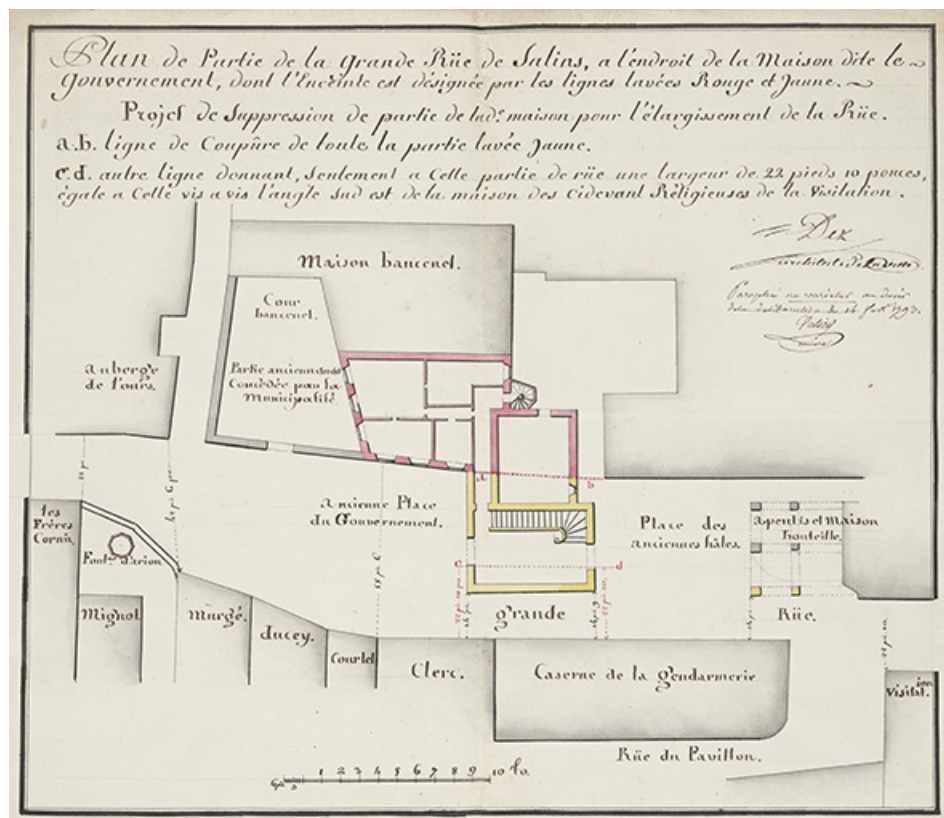 Plan de Partie de la Grande Rüe de Salins, a l'endroit de la Maison dite le
Gouvernement, dont l'Enceinte est désignée par les lignes lavées Rouge et Jaune.
Projet de Suppression de partie de lad.e maison pour l'élargissement de la Rüe.
a.b. ligne de Coupüre de toute la partie lavée Jaune.
c.d. autre ligne donnant, Seulement a Cette partie de rüe une largeur de 22 pieds 10 pouces,
égale a Celle vis a vis l'angle Sud est de la maison des cidevant Réligieuses de la Visitation.
Dez
architecte
Paraphé ne varietur au désir
de la délibération du 14
Maison bancenel.
Cour
bancenel.
Partie anciennement
Concédée par la
Municipalité
auberge
de l'ours.
a
b
ancienne Place
du Gouvernement.
Place des
anciennes hâles.
apentis et Maison
fronteille.
les
Frères
Cornir
Font. d'arion
c
d
grande
Rüe.
Mignot
Murgé.
ducey.
Courlet
Clerc.
Caserne de la gendarmerie
Visitat.ion
Rüe du Pavillon.
1 2 3 4 5 6 7 8 9 10 to.